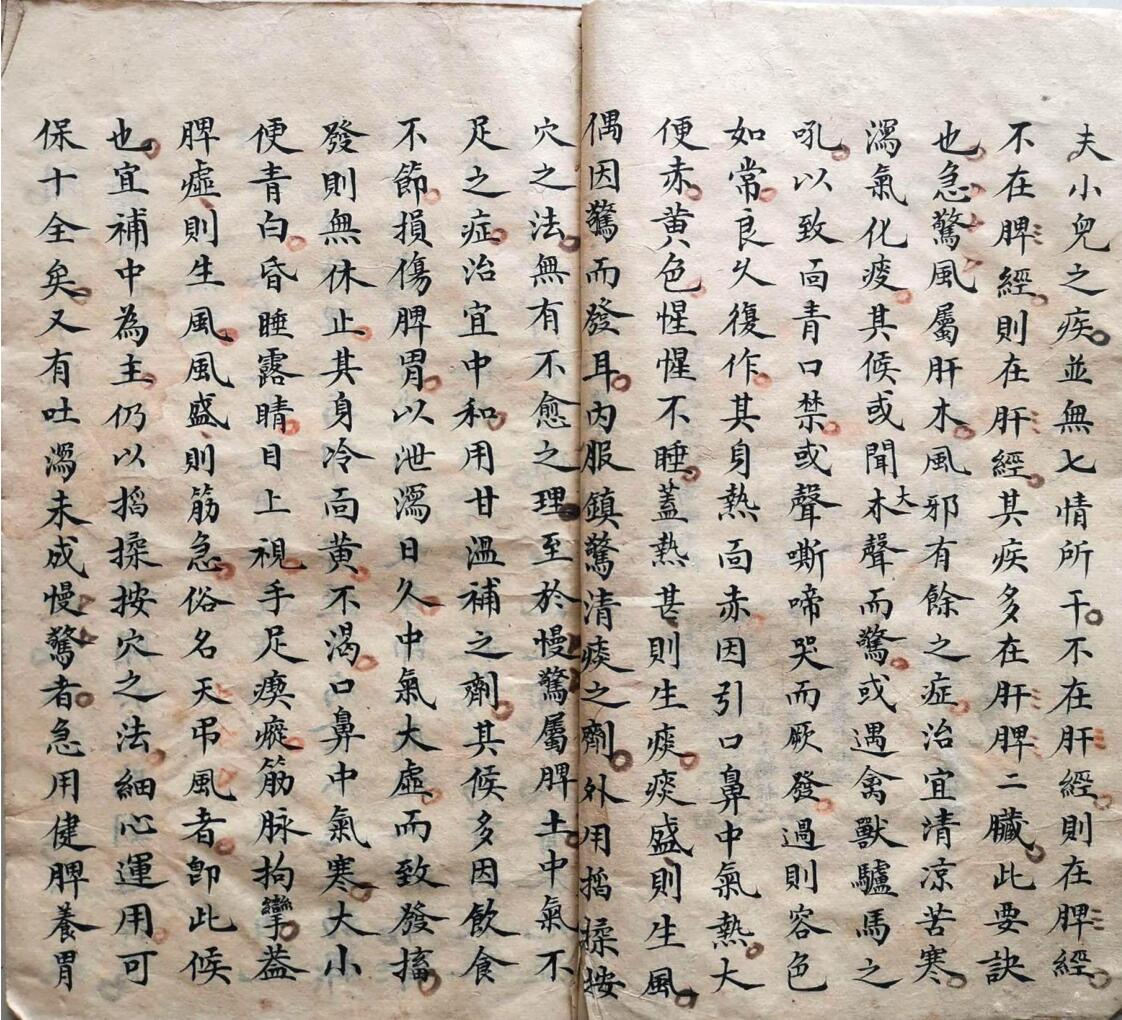 夫小兒之疾並無七情所干不在肝經則在脾經
不在脾經則在肝經其疾多在肝脾二臟此要訣
也急驚風屬肝木風邪有餘之症治宜清凉苦寒
瀉氣化痰其候或聞木大聲而驚或遇禽獸驢馬之
吼以致面青口禁或聲嘶啼哭而厥發過則容色
如常良久復作其身熱面赤因引口鼻中氣熱大
便赤黄色惺惺不睡蓋熱甚則生痰痰盛則生風
偶因驚而發耳内服鎮驚清痰之劑外用搯揉按
穴之法無有不愈之理至於慢驚屬脾土中氣不
足之症治宜中和用甘溫補之劑其候多因飲食
不節損傷脾胃以泄瀉日久中氣大虛而致發搐
發則無休止其身冷面黄不渴口鼻中氣寒大小
便青白昏睡露睛目上視手足瘈瘲筋脉拘攣葢
脾虛則生風風盛則筋急俗名天吊風者卽此候
也宜補中為主仍以搯揉按穴之法細心運用可
保十全矣又有吐瀉未成慢驚者急用健脾養胃